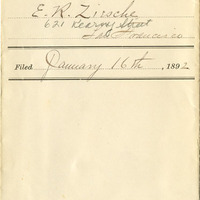 E. R. Zirsche
621 Kearny Street
San Francisco
Filed January 16th, 1892